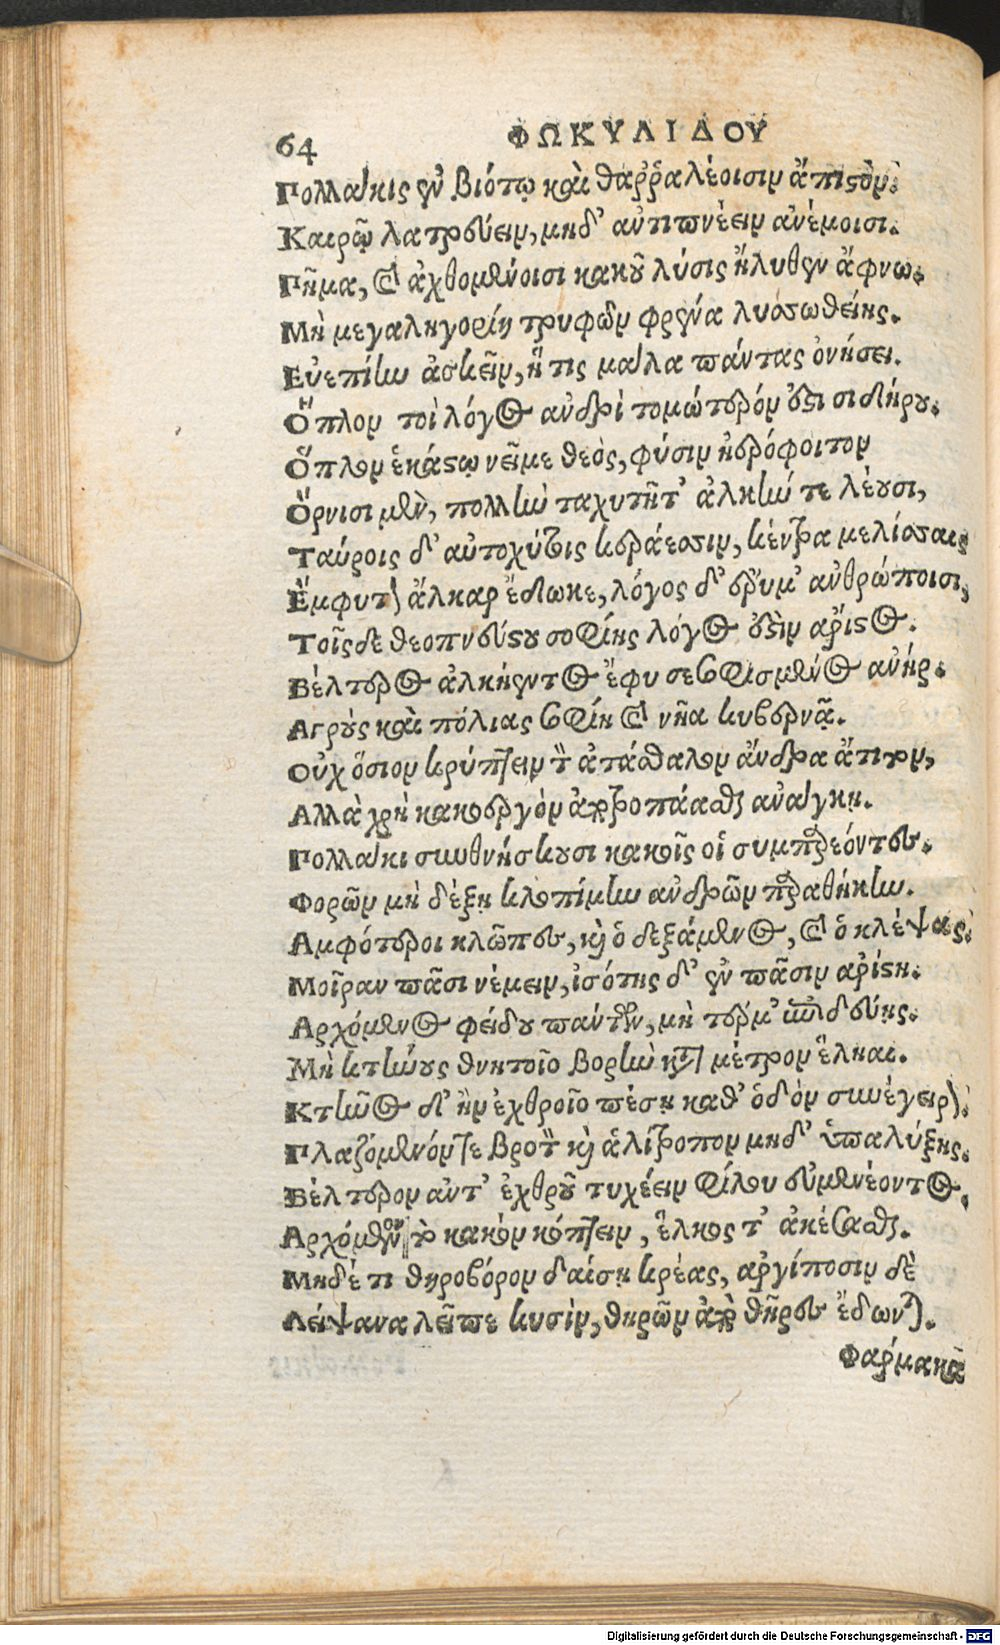 64 ΦΩΚΥΛΙΔΟΥ
Πολλάκις ἐν βιότῳ καὶ θαῤῥαλέοισιν ἄπιστον.
Καιρῷ λατρεύειν, μηδ' ἀντιπνέειν ἀνέμοισι.
Πῆμα, καὶ ἀχθομένοισι κακοῦ λύσις ἤλυθεν ἄφνω.
Μὴ μεγαληγορίῃ τρυφῶν φρένα λυσσωθείης.
Εὐεπίην ἀσκεῖν, ἥτις μάλα πάντας ὀνήσει.
Ὅπλον τοὶ λόγος ἀνδρὶ τομώτερόν ὅξι σιδήρου.
Ὅπλον ἑκάστῳ νεῖμε θεὸς, φύσιν ἠερόφοιτον
Ὄρνισι μὲν, πολλὴν ταχυτῆτ' ἀλκήν τε λέουσι,
Ταύροις δ' αὐτοχύτοις κεράεσσιν, κέντρα μελίσσαις
Ἔμφυτον ἄλκαρ ἔδωκε, λόγος δ' ἔρυμ' ἀνθρώποισι,
Τοῖς δε θεοπνεύστου σοφίης λόγος ὅξὶν ἄριστος.
Βέλτερος ἀλκήεντος ἔφυ σεσοφισμένος ἀνήρ.
Αγροὺς καὶ πόλιας σοφίη καὶ νῆα κυβερνᾷ.
Οὐχ ὅσιον κρύπτειν τὸν ἀτάσθαλον ἄνδρα ἄτιτον,
Αλλὰ χρὴ κακοεργὸν ἀποτροπάασθαι ἀνάγκῃ.
Πολλάκι συνθνήσκουσι κακοῖς οἱ συμπαρεόντες.
Φορῶν μὴ δέξῃ κλοπίμην ἀνδρῶν παραθήκην.
Αμφότεροι κλῶπες, καὶ ὁ δεξάμενος, καὶ ὁ κλέψας.
Μοῖραν πᾶσι νέμειν, ἰσότης δ' ἐν πᾶσιν ἀρίστη.
Αρχόμενος φείδου πάντων, μὴ τέρμ' ἐπιδεύῃς.
Μὴ κτήνους θνητοῖο βορὴν κατὰ μέτρον ἕληαι.
Κτῆνος δ' ἢν ἐχθροῖο πέσῃ καθ' ὁδὸν συνέγειραι.
Πλαζόμενόν τε βροτὸν καὶ ἁλίτροπον μηδ' ὑπαλύξῃς.
Βέλτερον ἀντ' ἐχθροῦ τυχέειν φίλου εὐμενέοντος,
Αρχόμενον τὸ κακὸν κόπτειν, ἕλκος τ' ἀκέσασθαι.
Μηδέ τι θηροβόρον δαίσῃ κρέας, ἀργίποσιν δὲ
Λείψανα λεῖπε κυσὶν, θηρῶν ἄπο θῆρες ἔδονται.
Φαρμακὰ
Digitalisierung gefördert durch die Deutsche Forschungsgemeinschaft - DFG